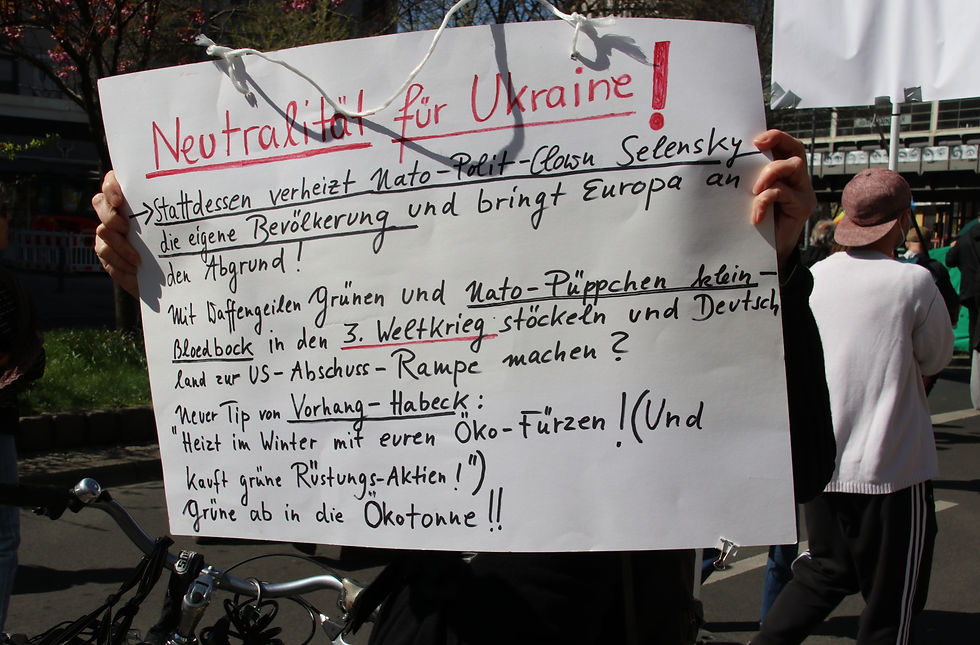 Neutralität für Ukraine!
→ Stattdessen verheizt Nato-Polit-Clown Selensky
die eigene Bevölkerung und bringt Europa an
den Abgrund!
Mit Waffengeilen Grünen und Nato-Püppchen klein-
Bloedbock in den 3. Weltkrieg stöckeln und Deutsch
land zur US-Abschuss-Rampe machen?
Neuer Tip von Vorhang-Habeck:
"Heizt im Winter mit euren Öko-Fürzen! (Und
kauft grüne Rüstungs-Aktien!")
Grüne ab in die Ökotonne!!